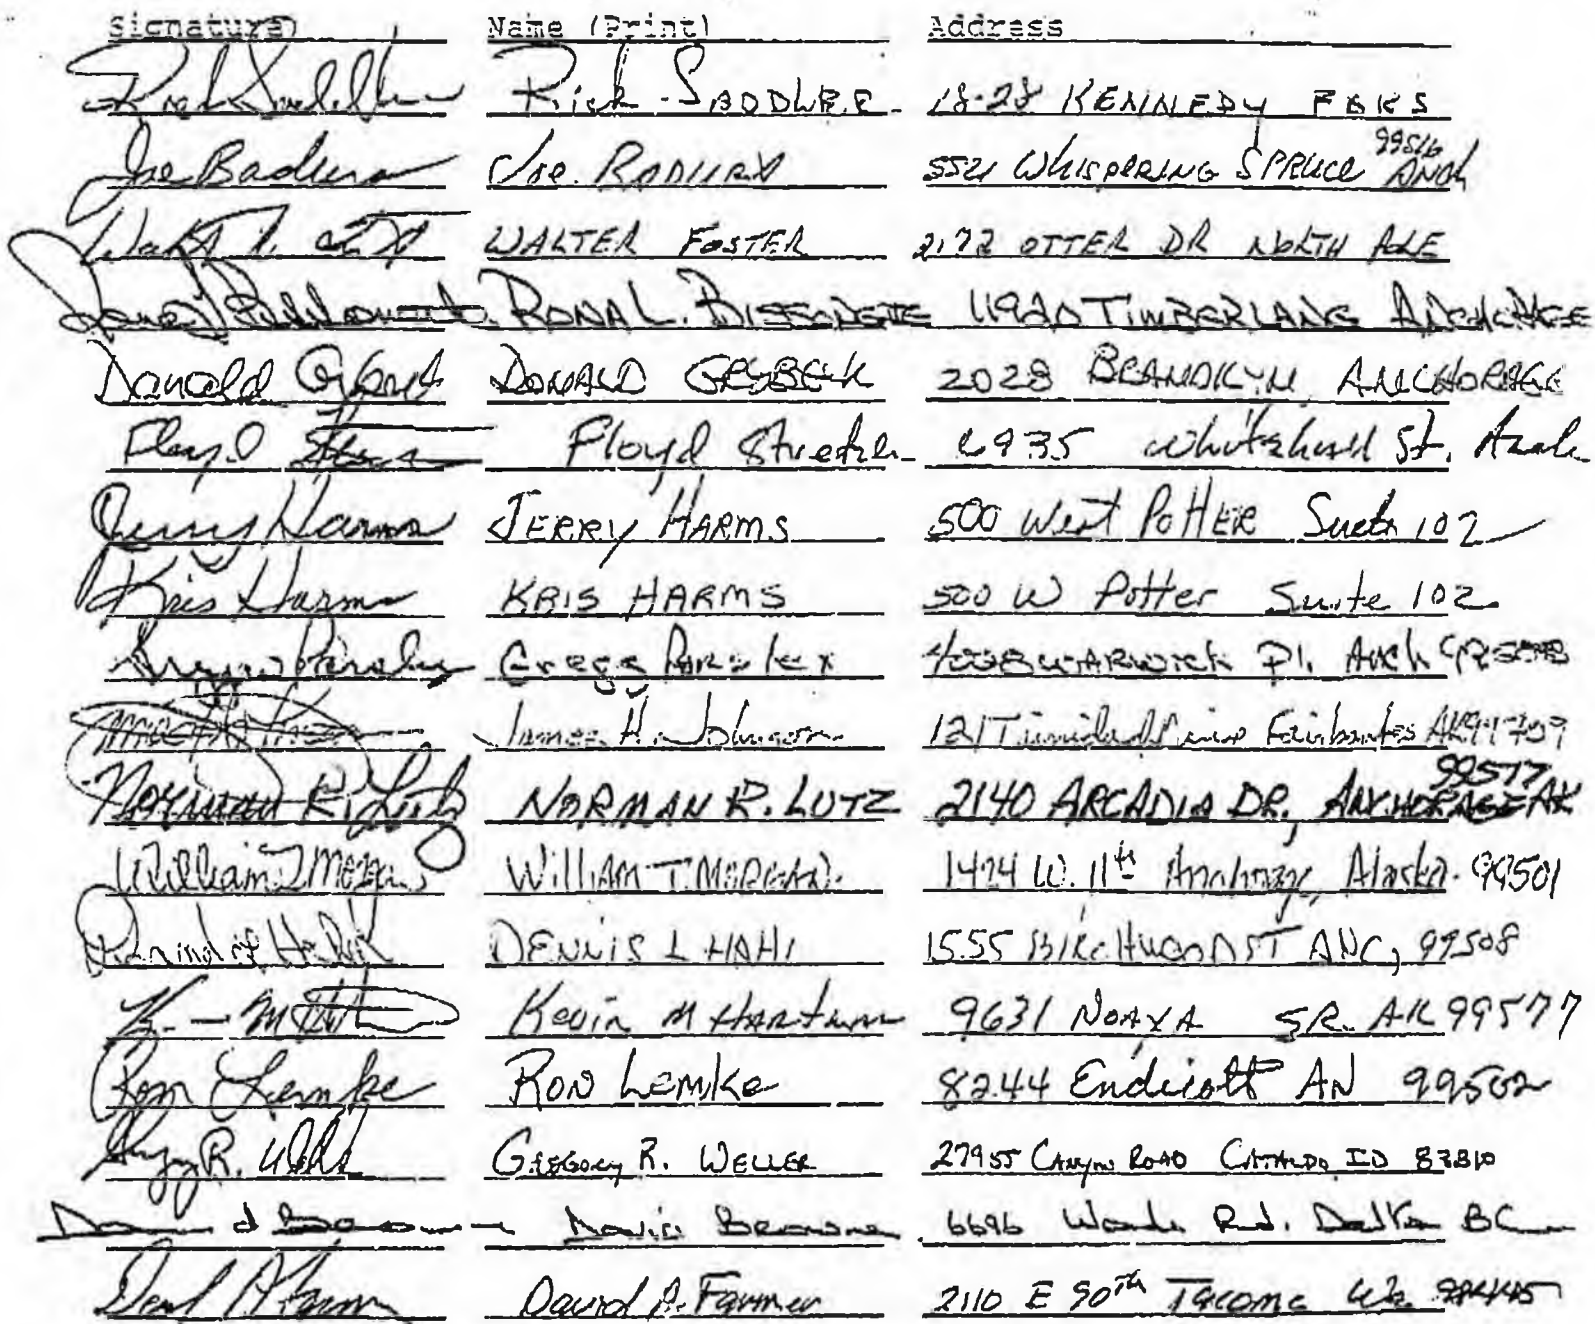 Signature Name (Print) Address
Rick SADDLER 18-28 KENNEDY FBKS
Joe Badura Joe BADURA 5521 WHISPERING SPRUCE ANCH 99516
WALTER FOSTER 2172 OTTER DR NORTH POLE
RONAL. BISSONETTE 11920 TIMBERLANE ANCHORAGE
Donald DONALD GRYBECK 2028 ANCHORAGE
Floyd Floyd 6935 St. Anch
Jerry Harms JERRY HARMS 500 West POTTER Suite 102
Kris Harms KRIS HARMS 500 W Potter Suite 102
Gregg Parsley 4008 WARWICK Pl. Anch
James H. Johnson 121 Trinidad Drive Fairbanks AK 99709
Norman R. Lutz NORMAN R. LUTZ 2140 ARCADIA DR., ANCHORAGE AK 99517
William T Morgan WILLIAM T. MORGAN 1424 W. 11th Anchorage, Alaska. 99501
DENNIS L HAHN 1555 BIRCHWOOD ST ANC, 99508
Kevin M Hartman 9631 NOAYA ER. AK 99577
Ron Lemke RON Lemke 8244 Endicott AN 99502
GREGORY R. WELLER 27955 CANYON ROAD CATALDO, ID 83810
David Browne 6696 Wade Rd. Delta BC
David A. Farmer 2110 E 90th Tacoma Wa. 98445